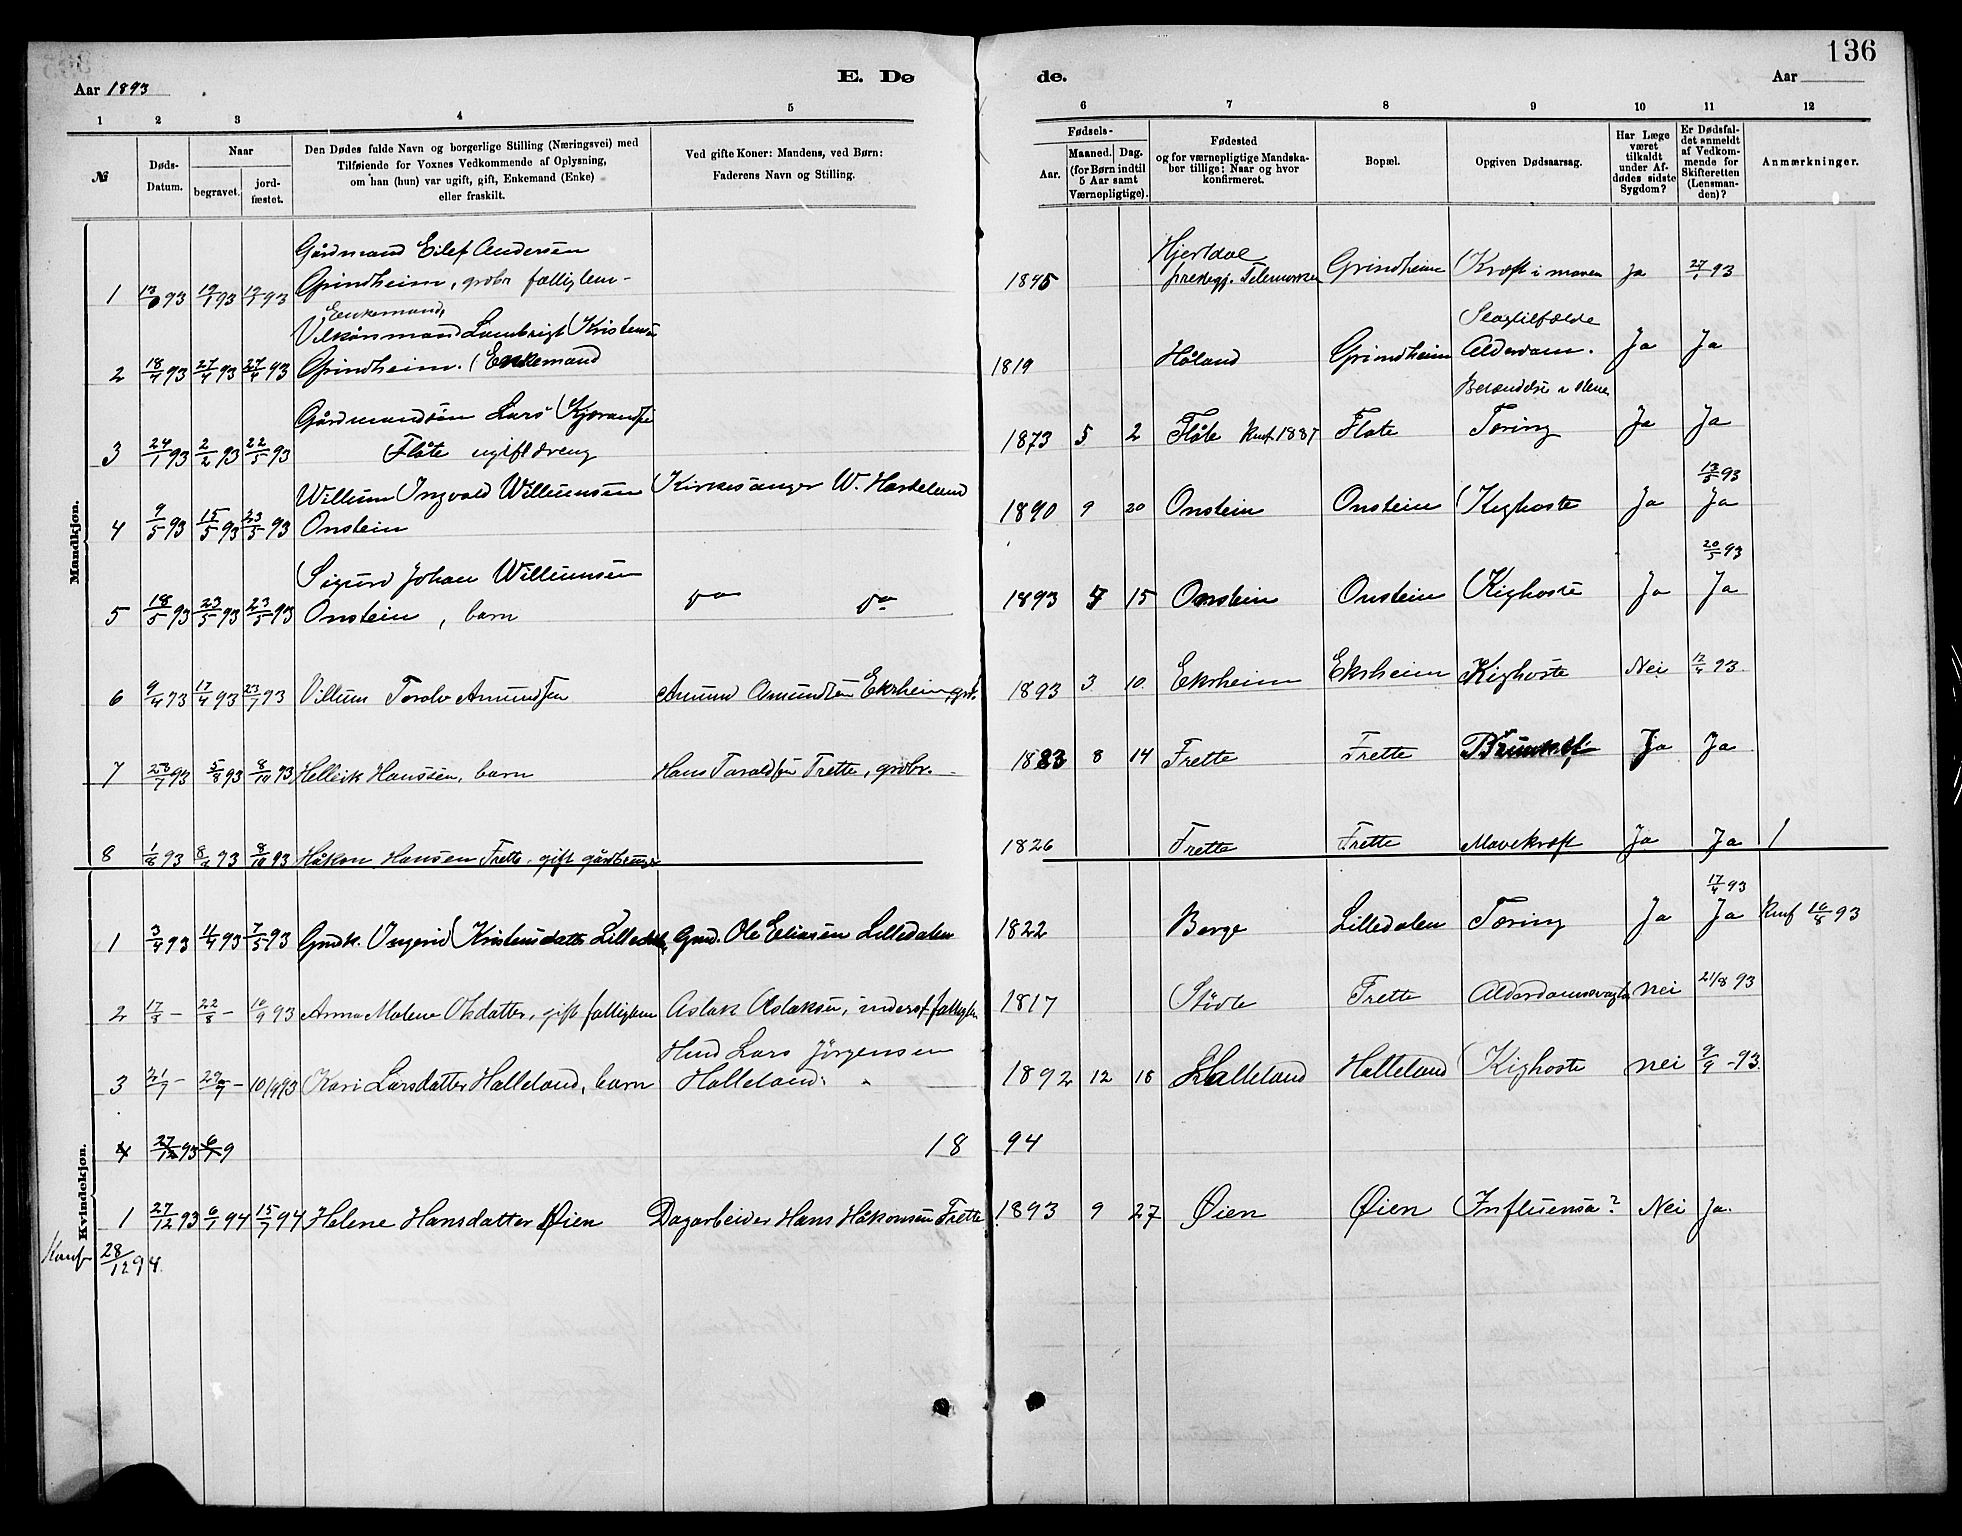 136
Aar 1893
E. Dø
de.
Aar
1 2 3 4 5 6 7 8 9 10 11 12
№
Døds-
Datum.
Naar
begravet.
jord-
fæstet.
Den Dødes fulde Navn og borgerlige Stilling (Næringsvei) med
Tilføiende for Voxnes Vedkommende af Oplysning,
om han (hun) var ugift, gift, Enkemand (Enke)
eller fraskilt.
Ved gifte Koner: Mandens, ved Børn:
Faderens Navn og Stilling.
Fødsels-
Aar.
Maaned. Dag.
(for Børn indtil
5 Aar samt
Værnepligtige).
Fødested
og for værnepligtige Mandska-
ber tillige: Naar og hvor
konfirmeret.
Bopæl.
Opgiven Dødsaarsag.
Har Læge
været
tilkaldt
under Af-
dødes sidste
Sygdom?
Er Dødsfal-
det anmeldt
af Vedkom-
mende for
Skifteretten
(Lensman-
den)?
Anmærkninger.
Mandkjøn.
Gårdmand Eilef Andersen Hjertdal
1 19/1 93 Grindheim, grdbr fælliglem- 1845 prestegj. Telemarken Grindheim Kræft i maven Ja 27/1 93
Enkemand,
Vilkårsmand Lambrigt Kristensen Slagtilfælde
2 18/4 93 27/4 93 27/4 93 Grindheim. (Enkemand 1819 Håland Grindheim Alderdom. Ja Ja
Gårdmandsøn Lars
3 24/1 93 2/2 93 22/5 93 Flåte ugift dreng 1873 5 2 Flåte Knf. 1887 Flåte Tæring Ja Ja
Willum Ingvald Willumsen Kirkesanger W.
4 9/5 93 15/5 93 23/5 93 Onstein 1890 9 20 Onstein Onstein Kighoste Ja Ja
Sigurd Johan Willumsen 20/5 93
5 18/5 93 23/5 93 23/5 93 Onstein, barn do do 1893 15 Onstein Onstein Kighoste Ja Ja
6 9/4 93 17/4 93 23/7 93 Villum Torolv Amundsen Amund Amundsen Ekrheim, grd. 1893 3 10 Ekrheim Ekrheim Kighoste Nei 12/4 93
7 28/7 93 5/8 93 8/10 93 Hellik Hanssen, barn Hans Taraldsen Frette, grdbr. 1883 8 14 Frette Frette Ja Ja
8 1/8 93 8/8 93 8/10 93 Håkon Hansen Frette, gift gårdbruger 1826 Frette Frette Mavekræft Ja Ja 1
Kvindekjøn.
17/4 93
1 3/4 93 11/4 93 7/5 93 Gmdk. Ingerid Kristensdatter Lilledal Gmd. Ole Eliasen Lilledalen 1822 Berge Lilledalen Tæring Ja Ja Knf 10/8 93
2 17/8 – 22/8 – 10/9 93 Anna Malene Olsdatter, gift fælliglem Aslak Aslaksen, inderst fælliglem 1817 Stødle Frette nei 21/8 93
Hmd Lars Jörgensen
3 21/7 – 29/7 – 10/9 93 Kari Larsdatter Halleland, barn Halleland. 1892 12 18 Halleland Halleland Kighoste nei 9/9 – 93
4 27/12 93 6/1 9
1894
1 27/12 93 6/1 94 15/7 94 Helene Hansdatter Øien Dagarbeider Hans Håkonsen Frette 1893 9 27 Øien Øien Influensa? Nei Ja.
Konf 28/12 94